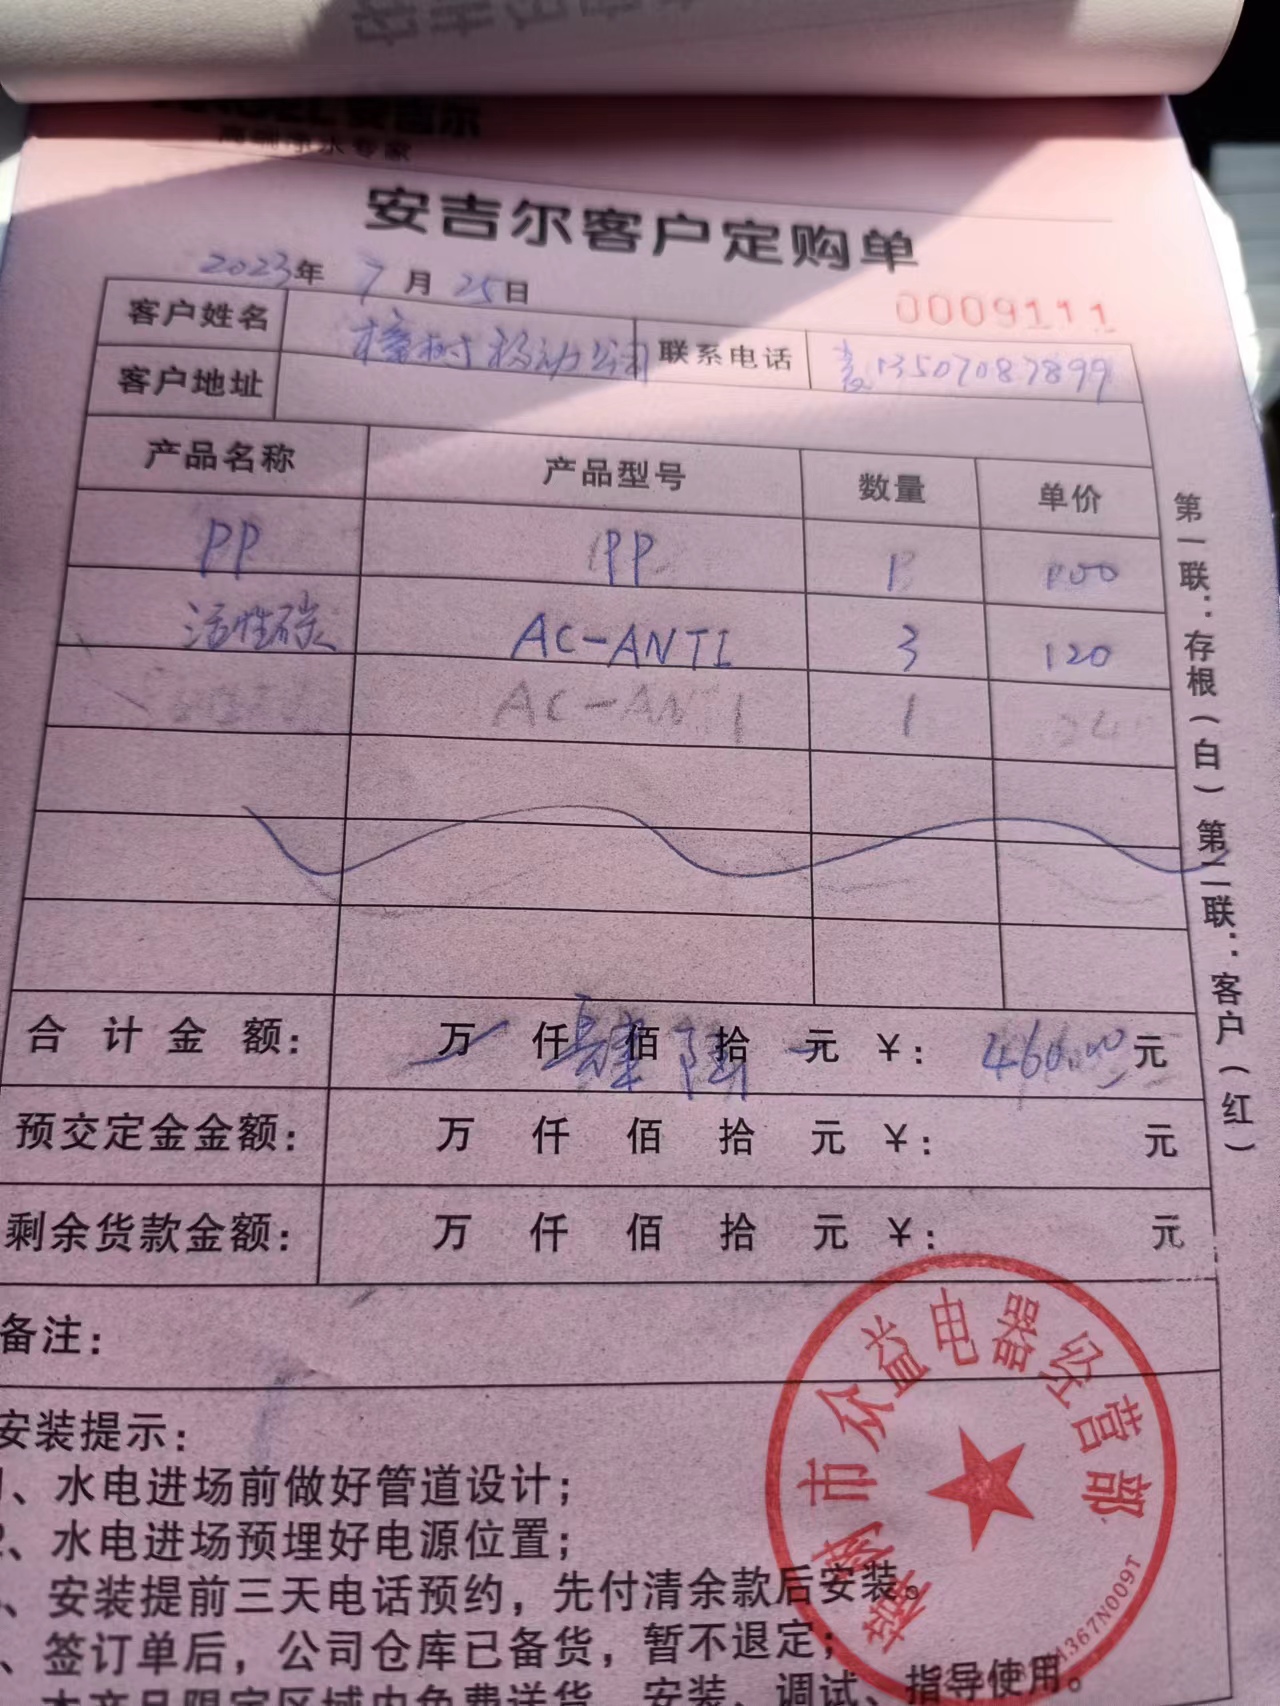 安吉尔
高端净水专家
安吉尔客户定购单
2023年 7月 25日
0009111
客户姓名 樟树移动公司 联系电话 袁13507087899
客户地址
产品名称 产品型号 数量 单价
PP PP 1 100
活性碳 AC-ANTI 3 120
AC-ANTI 1
合计金额: 万 仟 肆佰 陆拾 元 ¥: 460.00元
预交定金金额: 万 仟 佰 拾 元 ¥: 元
剩余货款金额: 万 仟 佰 拾 元 ¥: 元
备注:
安装提示:
1、水电进场前做好管道设计;
2、水电进场预埋好电源位置;
、安装提前三天电话预约,先付清余款后安装。
、签订单后,公司仓库已备货,暂不退定;
本产品限定区域内免费送货、安装、调试、指导使用。
第一联:存根(白) 第二联:客户(红)
樟树市众益电器经营部
1367N009T